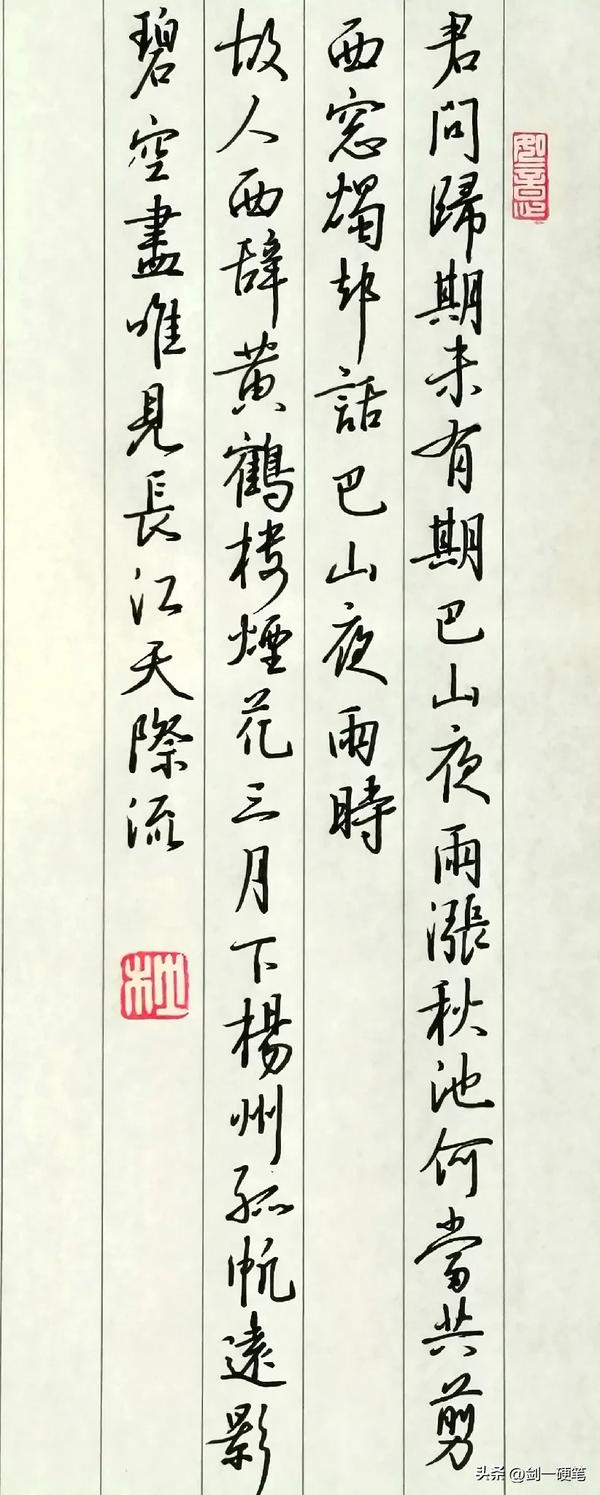 君問歸期未有期巴山夜雨漲秋池何當共剪
西窓燭却話巴山夜雨時
故人西辞黄鶴楼煙花三月下楊州孤帆遠影
碧空盡唯見長江天際流
头条 @剑一硬笔